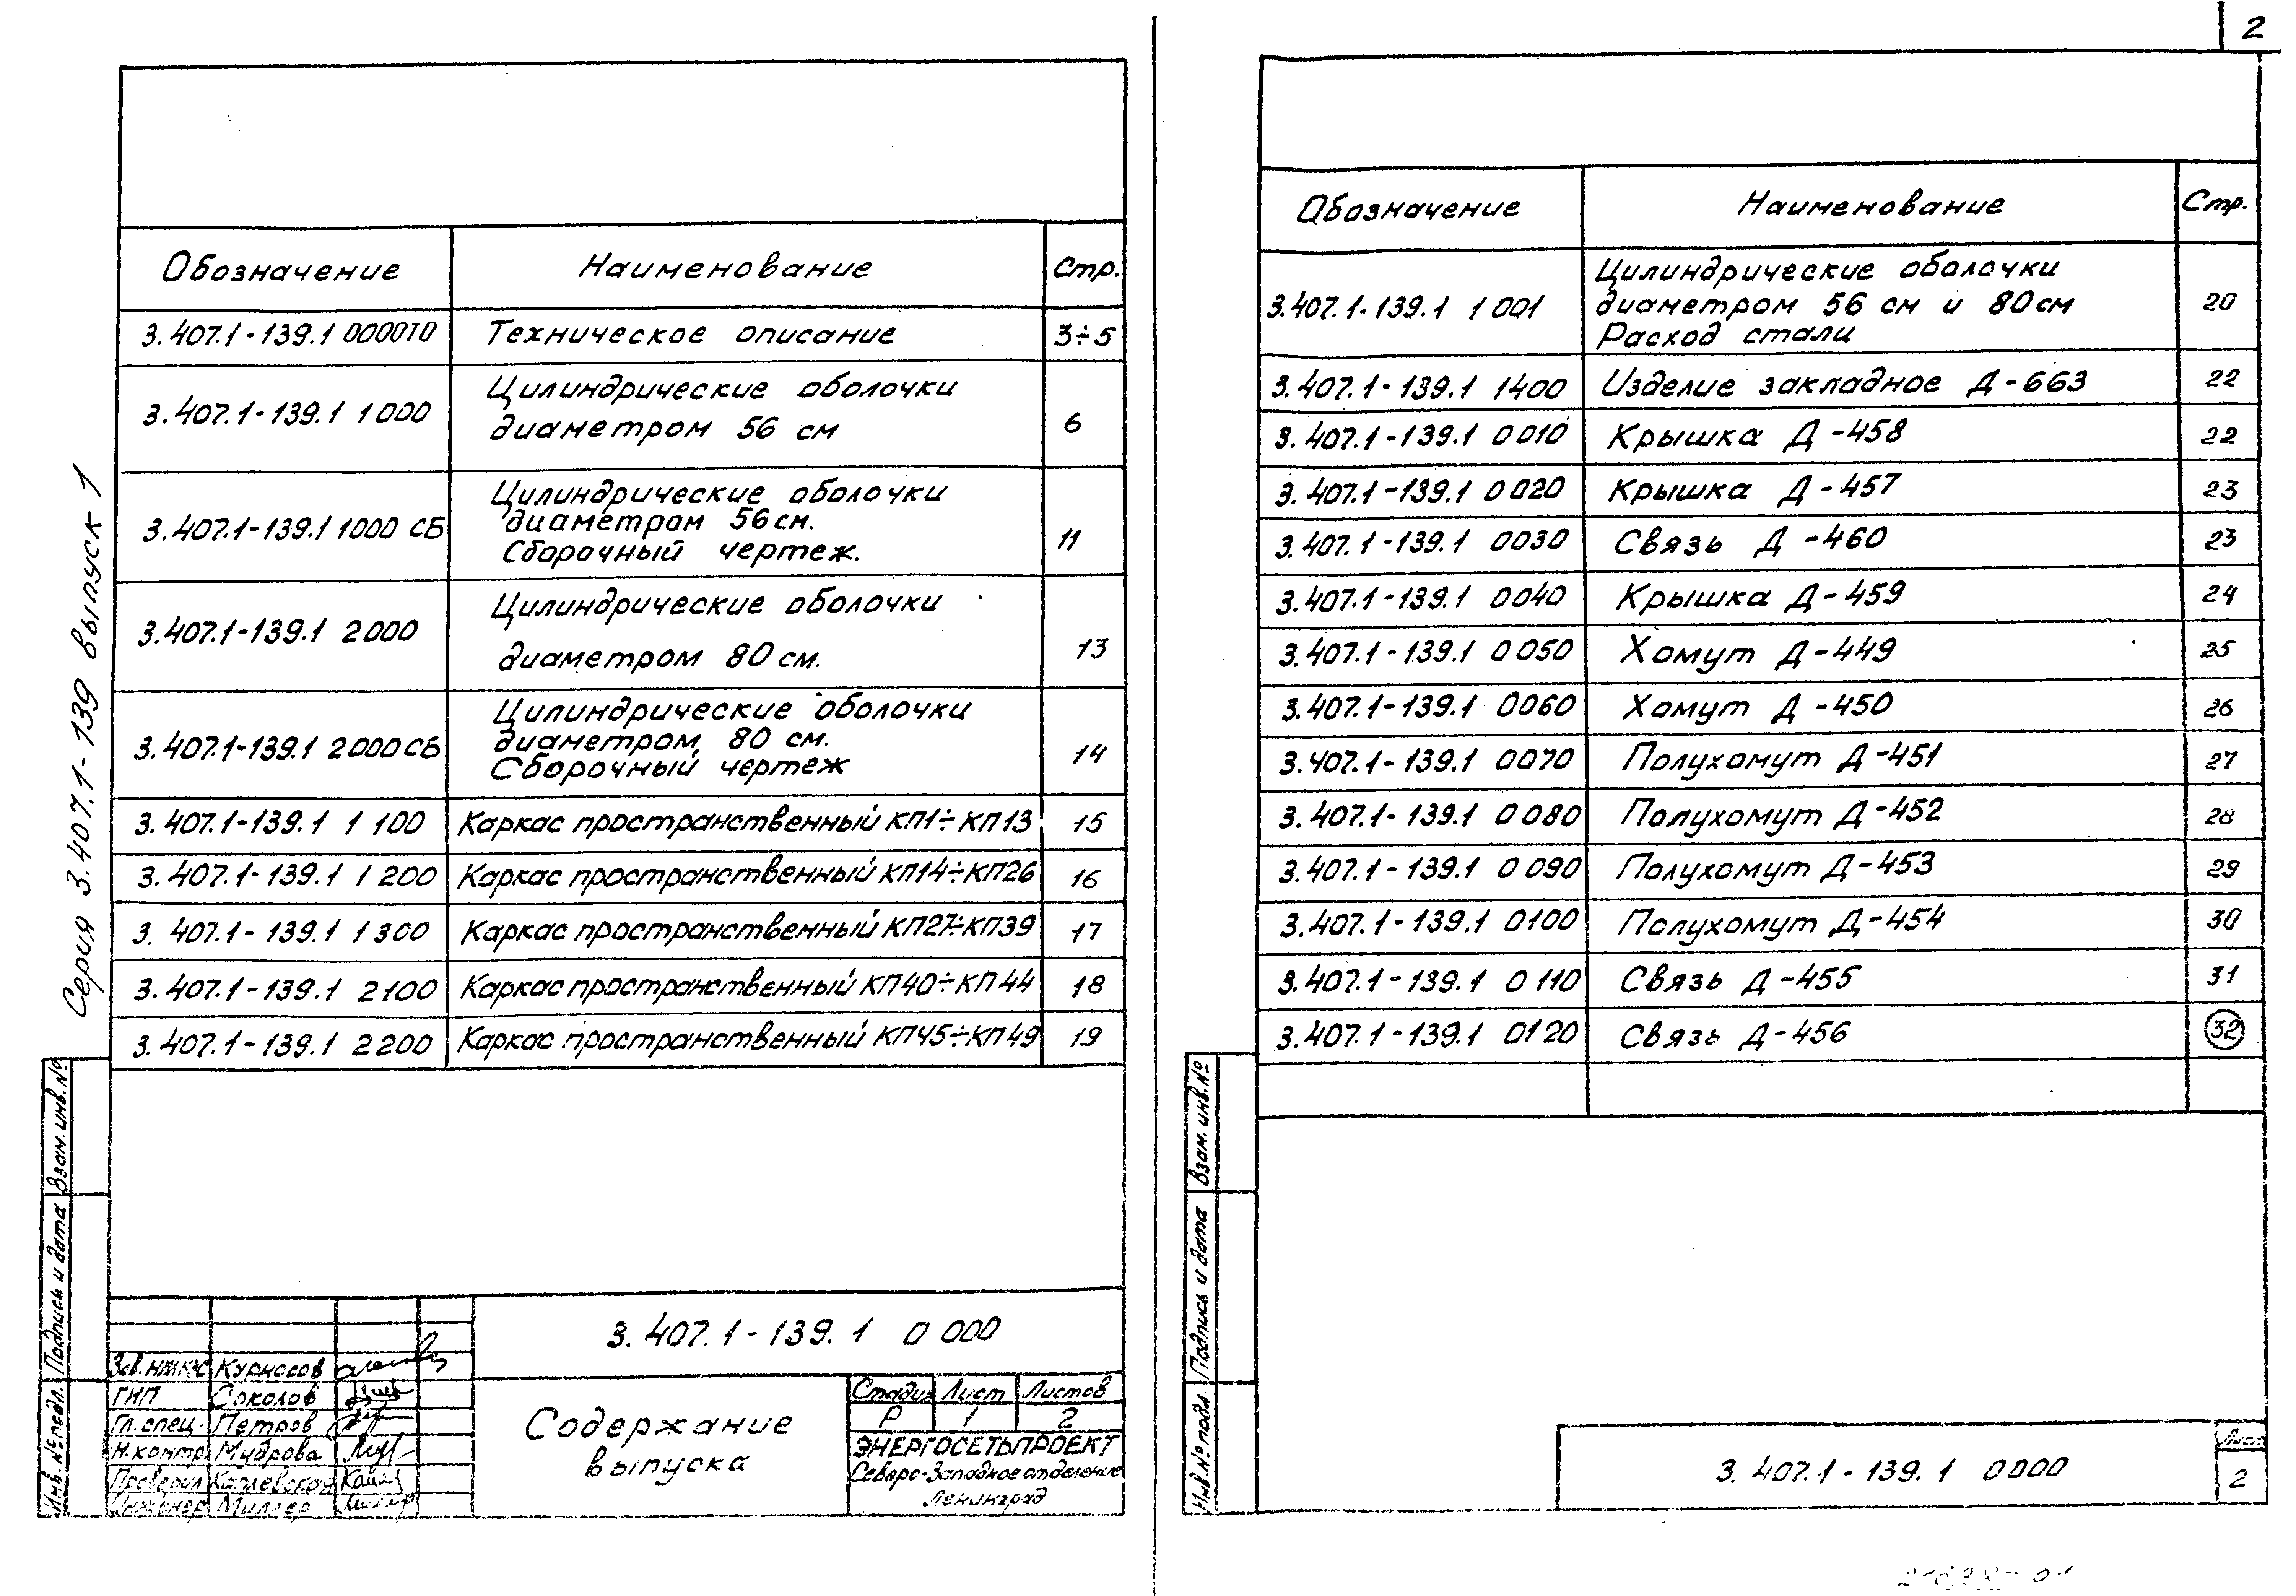 2
Серия 3.407.1-139 выпуск 1
Обозначение Наименование Стр.
3.407.1-139.1 0000ТО Техническое описание 3÷5
3.407.1-139.1 1000 Цилиндрические оболочки
диаметром 56 см 6
3.407.1-139.1 1000 СБ Цилиндрические оболочки
диаметром 56 см.
Сборочный чертеж. 11
3.407.1-139.1 2000 Цилиндрические оболочки
диаметром 80 см. 13
3.407.1-139.1 2000 СБ Цилиндрические оболочки
диаметром 80 см.
Сборочный чертеж 14
3.407.1-139.1 1100 Каркас пространственный КП1÷КП13 15
3.407.1-139.1 1200 Каркас пространственный КП14÷КП26 16
3.407.1-139.1 1300 Каркас пространственный КП27÷КП39 17
3.407.1-139.1 2100 Каркас пространственный КП40÷КП44 18
3.407.1-139.1 2200 Каркас пространственный КП45÷КП49 19
Взам. инв. №
Подпись и дата
Инв. № подл.
3.407.1-139.1 0000
Курносов
ГИП Соколов
Гл. спец. Петров
Н. контр. Мудрова
Проверил
Инженер
Содержание
выпуска
Стадия Лист Листов
Р 1 2
ЭНЕРГОСЕТЬПРОЕКТ
Северо-Западное отделение
Ленинград
Обозначение Наименование Стр.
3.407.1-139.1 1001 Цилиндрические оболочки
диаметром 56 см и 80 см
Расход стали 20
3.407.1-139.1 1400 Изделие закладное Д-663 22
3.407.1-139.1 0010 Крышка Д-458 22
3.407.1-139.1 0020 Крышка Д-457 23
3.407.1-139.1 0030 Связь Д-460 23
3.407.1-139.1 0040 Крышка Д-459 24
3.407.1-139.1 0050 Хомут Д-449 25
3.407.1-139.1 0060 Хомут Д-450 26
3.407.1-139.1 0070 Полухомут Д-451 27
3.407.1-139.1 0080 Полухомут Д-452 28
3.407.1-139.1 0090 Полухомут Д-453 29
3.407.1-139.1 0100 Полухомут Д-454 30
3.407.1-139.1 0110 Связь Д-455 31
3.407.1-139.1 0120 Связь Д-456 32
Взам. инв. №
Подпись и дата
Инв. № подл.
3.407.1-139.1 0000
Лист
2